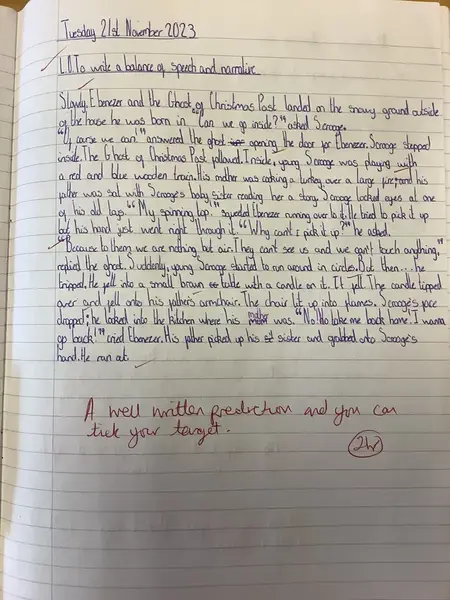 Tuesday 21st November 2023
L.O. To write a balance of speech and narrative
Slowly, Ebenezer and the Ghost of Christmas Past landed on the snowy ground outside
of the house he was born in. "Can we go inside?" asked Scrooge.
"Of course we can!" answered the ghost opening the door for Ebenezer. Scrooge stepped
inside. The Ghost of Christmas Past followed. Inside, young Scrooge was playing with
a red and blue wooden train. His mother was cooking a turkey over a large fire; and his
father was sat with Scrooge's baby sister reading her a story. Scrooge locked eyes at one
of his old toys. "My spinning top." squealed Ebenezer running over to it. He tried to pick it up
but his hand just went right through it. "Why can't i pick it up?" he asked.
"Because to them we are nothing but air. They can't see us and we can't touch anything,"
replied the ghost. Suddenly, young Scrooge started to run around in circles. But then... he
tripped. He fell into a small brown table with a candle on it. It fell. The candle tipped
over and fell onto his father's armchair. The chair lit up into flames. Scrooge's face
dropped; he looked into the kitchen where his mother was. "No! No take me back home! I wanna
go back!" cried Ebenezer. His father picked up his sister and grabbed onto Scrooge's
hand. He ran out.
A well written prediction and you can
tick your target.